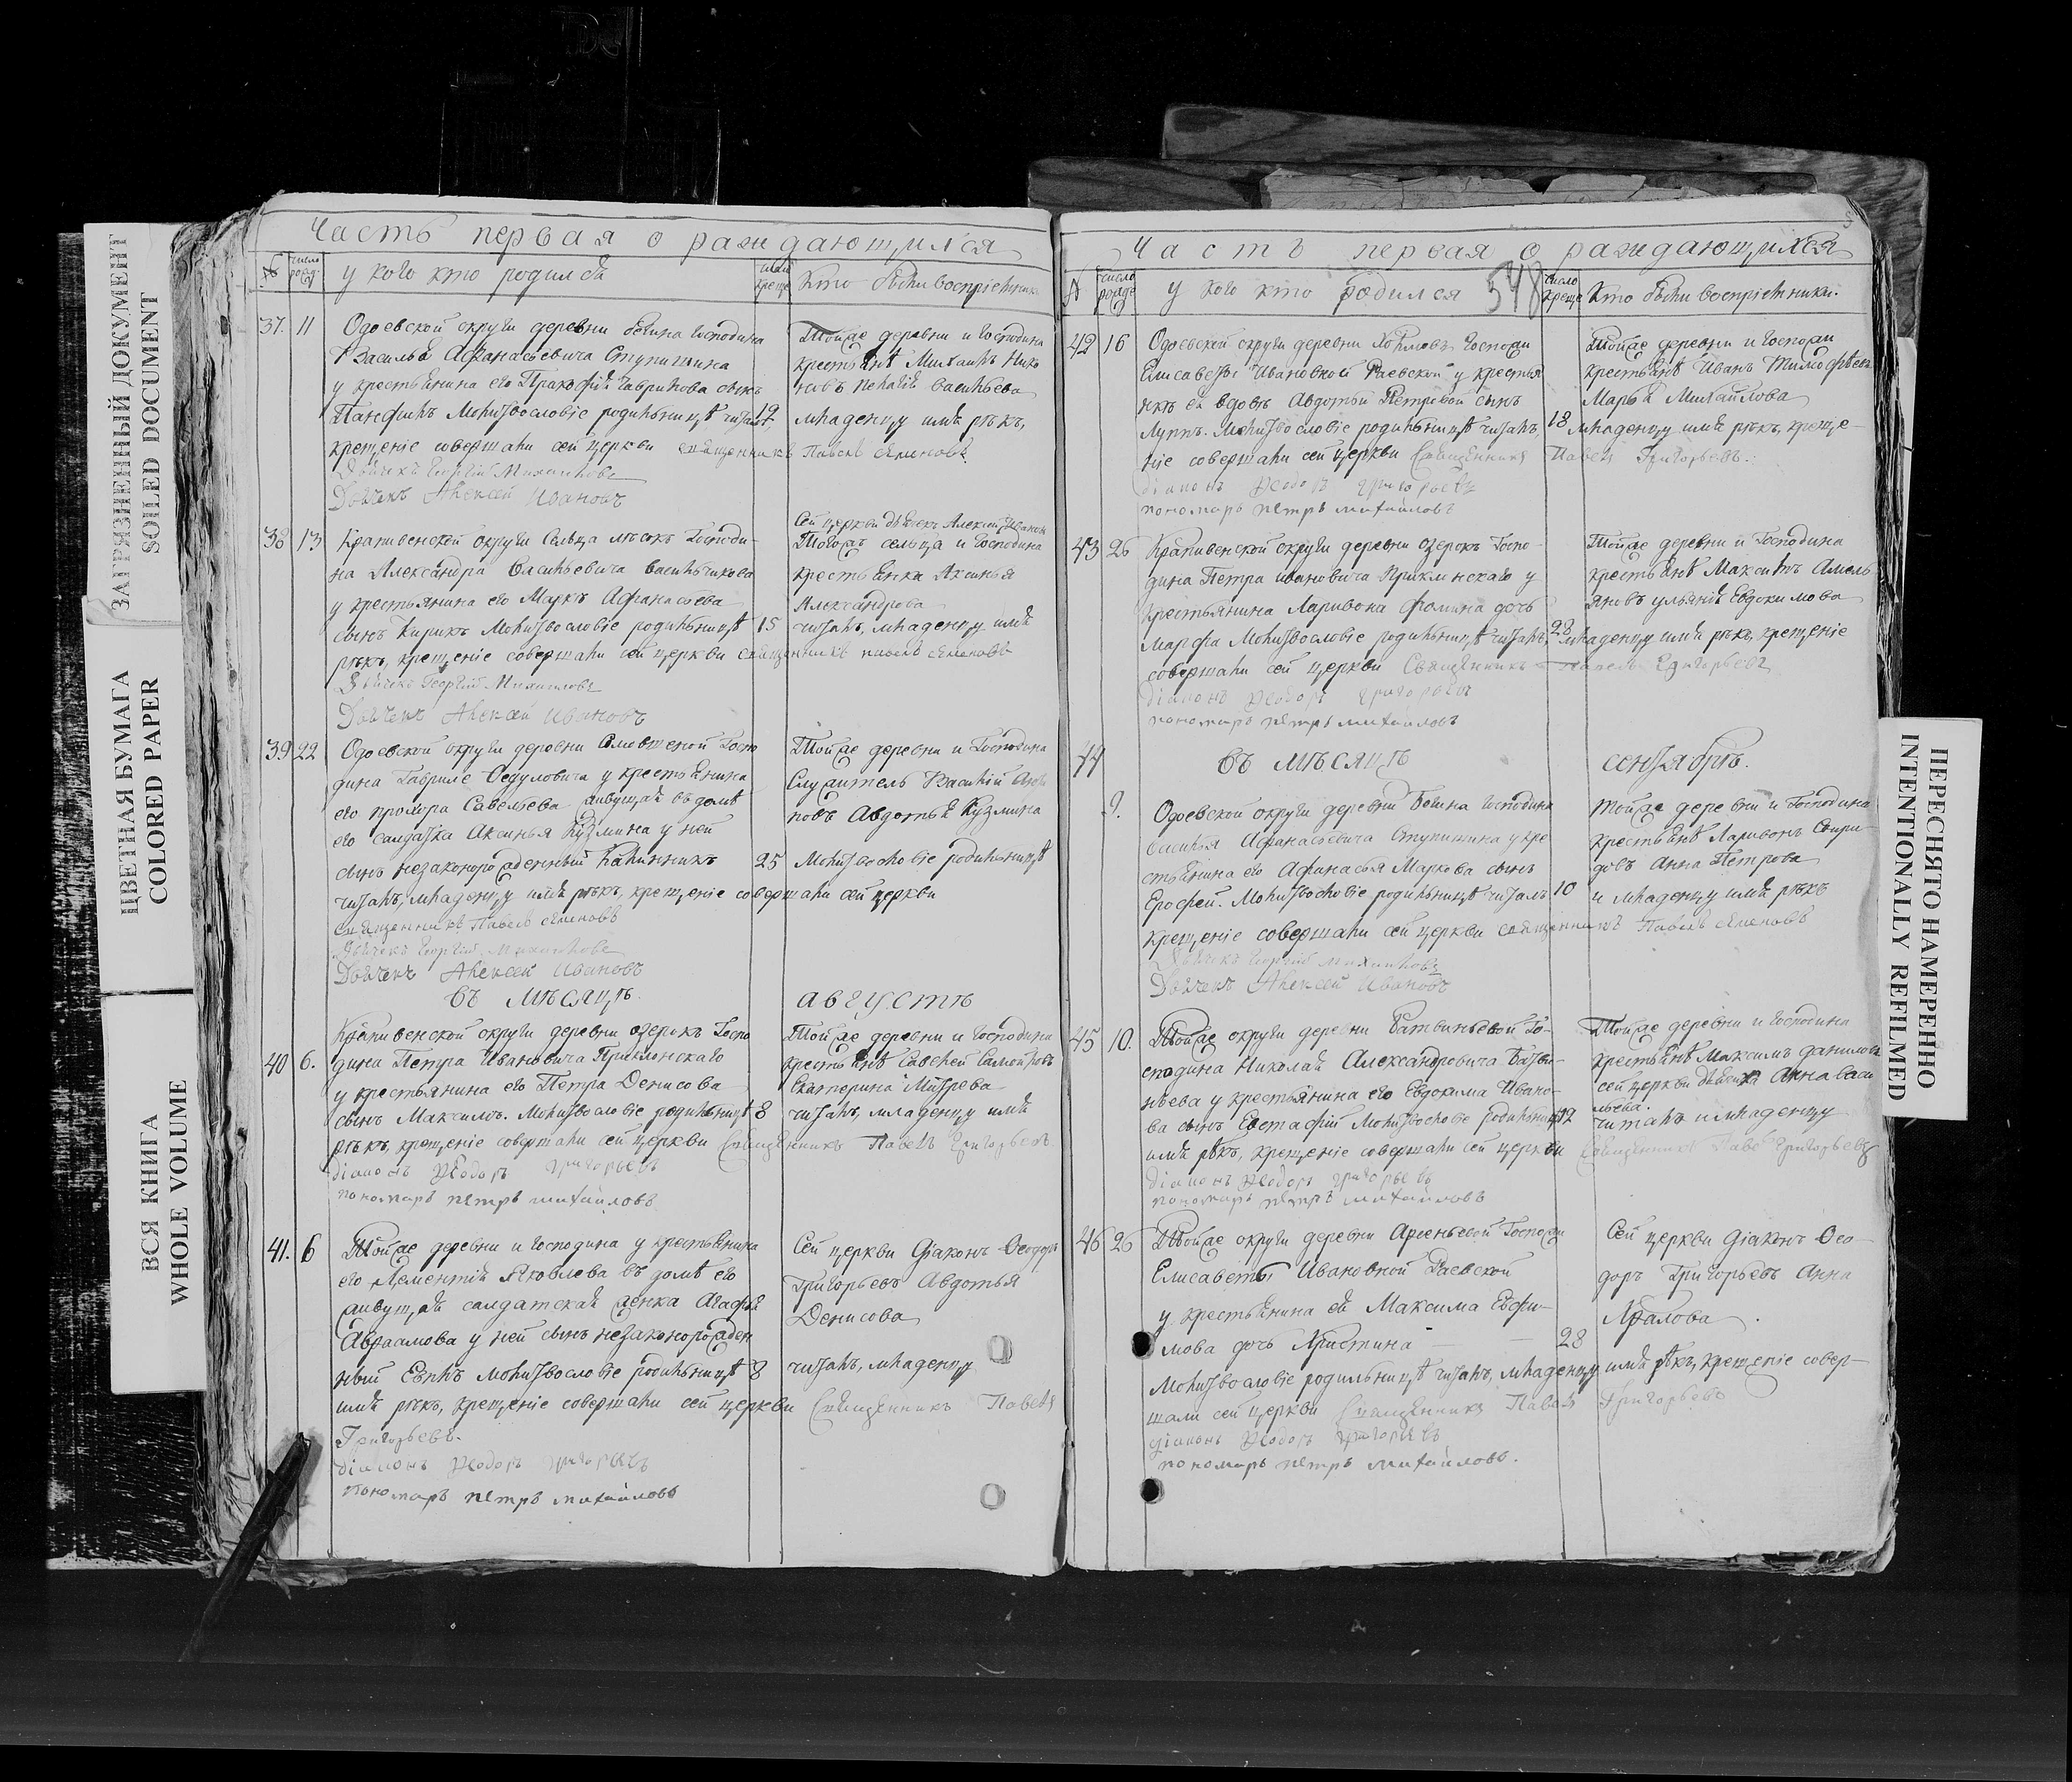 Часть первая о раждающихся
№
число рожд
у кого кто родился
число креще
Кто были восприемники
37. 11
Одоевской округи деревни господина
Василья Афанасьевича Ступишина
у крестьянина его Пракофия Гаврилова сынъ
Панфилъ Молитвословіе родильницѣ читалъ 12
крещеніе совершали сей церкви священникъ Павелъ Семеновъ
Дьячекъ Георгій Михайловъ
Дьячекъ Алексей Ивановъ
Тойже деревни и господина
крестьянѣ Михаилъ Нико
новъ Пелагия Васильева
младенцу имя рекъ,
38 13
Крапивенской округи Сельца Господи-
на Александра Васильевича Васильчикова
у крестьянина его Марка Афанасьева
сынъ Кирикъ Молитвословіе родильницѣ 15
рекъ, крещеніе совершали сей церкви священникъ Павелъ Семеновъ
Дьячекъ Георгій Михайловъ
Дьячекъ Алексей Ивановъ
Сей церкви дьячекъ Алексей Иванов
Тогожъ сельца и господина
крестьянка Аксинья
Александрова
читалъ, младенцу имя
39 22
Одоевской округи деревни Госпо
дина Гавриле Федуловича у крестьянина
его прохора Савельева живущая въ домѣ
его салдатка Аксинья Кузмина у ней
сынъ незаконорожденный Калинникъ 25
читалъ, младенцу имя рекъ, крещеніе совершали сей церкви
священникъ Павелъ Семеновъ
Дьячекъ Георгій Михайловъ
Дьячекъ Алексей Ивановъ
Тойже деревни и Господина
Служитель Василій
повъ Авдотья Кузмина
Молитвословіе родильницѣ
въ мѣсяцѣ августѣ
40 6.
Крапивенской округи деревни озерокъ Госпо
дина Петра Ивановича Приклонскаго
у крестьянина его Петра Денисова
сынъ Максимъ. Молитвословіе родильницѣ 8
рекъ, крещеніе совершали сей церкви Священникъ Павелъ Григорьевъ
діаконъ Ѳеодоръ григорьевъ
пономарь петръ михайловъ
Тойже деревни и господина
крестьянѣ Савелей
Екатерина
читалъ, младенцу имя
41. 6
Тойже деревни и господина у крестьянина
его Дементія Яковлева въ домѣ его
живущая салдатская женка Агафья
Авраамова у ней сынъ незаконорожден
ный Евплъ молитвословіе родильницѣ 8
имя рекъ, крещеніе совершали сей церкви Священникъ Павелъ
Григорьевъ.
діаконъ Ѳеодоръ григорьевъ
пономарь петръ михайловъ
Сей церкви діаконъ Ѳеодоръ
Григорьевъ Авдотья
Денисова
читалъ, младенцу
Часть первая о раждающихся
№
число рожде
у кого кто родился
548
число креще
Кто были восприемники.
42 16
Одоевской округи деревни Госпожи
Елисаветы Ивановной Раевской у крестья
нкѣ ея вдовѣ Авдотьи Петровой сынъ
Луппъ. Молитвословіе родильницѣ читалъ, 18 младенцу имя рекъ, креще-
ніе совершали сей церкви Священникъ Павелъ Григорьевъ.
діаконъ Ѳеодоръ григорьевъ
пономарь петръ михайловъ
Тойже деревни и госпожи
крестьянѣ Иванъ Тимофѣевъ
Марья Михайлова
43 26
Крапивенской округи деревни озерокъ Госпо-
дина Петра ивановича Приклонскаго у
крестьянина Ларивона Фомина дочь
Марфа Молитвословіе родильницѣ читалъ, 28 младенцу имя рекъ, крещеніе
совершали сей церкви Священникъ Павелъ Григорьевъ
діаконъ Ѳеодоръ григорьевъ
пономарь петръ михайловъ
Тойже деревни и Господина
крестьянѣ Максимъ Амель
яновъ ульяна Евдокимова
44
въ мѣсяцѣ сентябрѣ.
9.
Одоевской округи деревни господина
василья Афанасьевича Ступишина у кре
стьянина его Афанасья Маркова сынъ
Ерофей. Молитвословіе родильницѣ читалъ 10 и младенцу имя рекъ
крещеніе совершали сей церкви священникъ Павелъ Семеновъ
Дьячекъ Георгій Михайловъ
Дьячекъ Алексей Ивановъ
тойже деревни и Господина
крестьянѣ Ларивонъ Спири-
довъ Анна Петрова
45 10.
Тойже округи деревни Батвиньевой Го-
сподина Николая Александровича Батви-
ньева у крестьянина его Евдокима Ивано-
ва сынъ Евстафій Молитвословіе родильницѣ 12
имя рекъ, крещеніе совершали сей церкви Священникъ Павелъ Григорьевъ
діаконъ Ѳеодоръ григорьевъ
пономарь петръ михайловъ
Тойже деревни и господина
крестьянѣ Максимъ данилов
сей церкви Анна Васи
льева.
читалъ и младенцу
46 26
Тойже округи деревни Арсеньевой Госпожи
Елисаветы Ивановной Раевской
у крестьянина ея Максима Евфи-
мова дочь Христина 28
Молитвословіе родильницѣ читалъ, младенцу имя рекъ, крещеніе совер-
шали сей церкви Священникъ Павелъ Григорьевъ
діаконъ Ѳеодоръ григорьевъ
пономарь петръ михайловъ.
Сей церкви діаконъ Ѳео-
доръ Григорьевъ Анна
ЗАГРЯЗНЕННЫЙ ДОКУМЕНТ
SOILED DOCUMENT
ЦВЕТНАЯ БУМАГА
COLORED PAPER
ВСЯ КНИГА
WHOLE VOLUME
ПЕРЕСНЯТО НАМЕРЕННО
INTENTIONALLY REFILMED